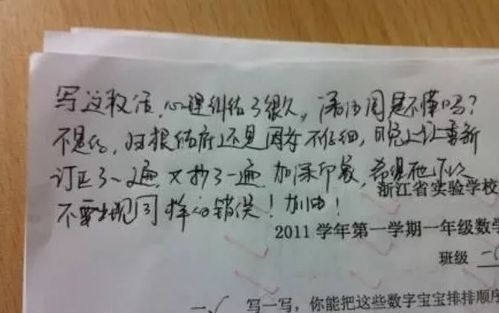 写这段话,心理纠结了很久,漏涂周是不懂吗?
不是的,归根结底还是因为不仔细,昨晚上让重新
订正了一遍,又抄了一遍,加深印象,希望他下次
不要出现同样的错误!加油!
浙江省实验学校
2011 学年第一学期一年级数学
班级 一(
一、 写一写,你能把这些数字宝宝排排顺序